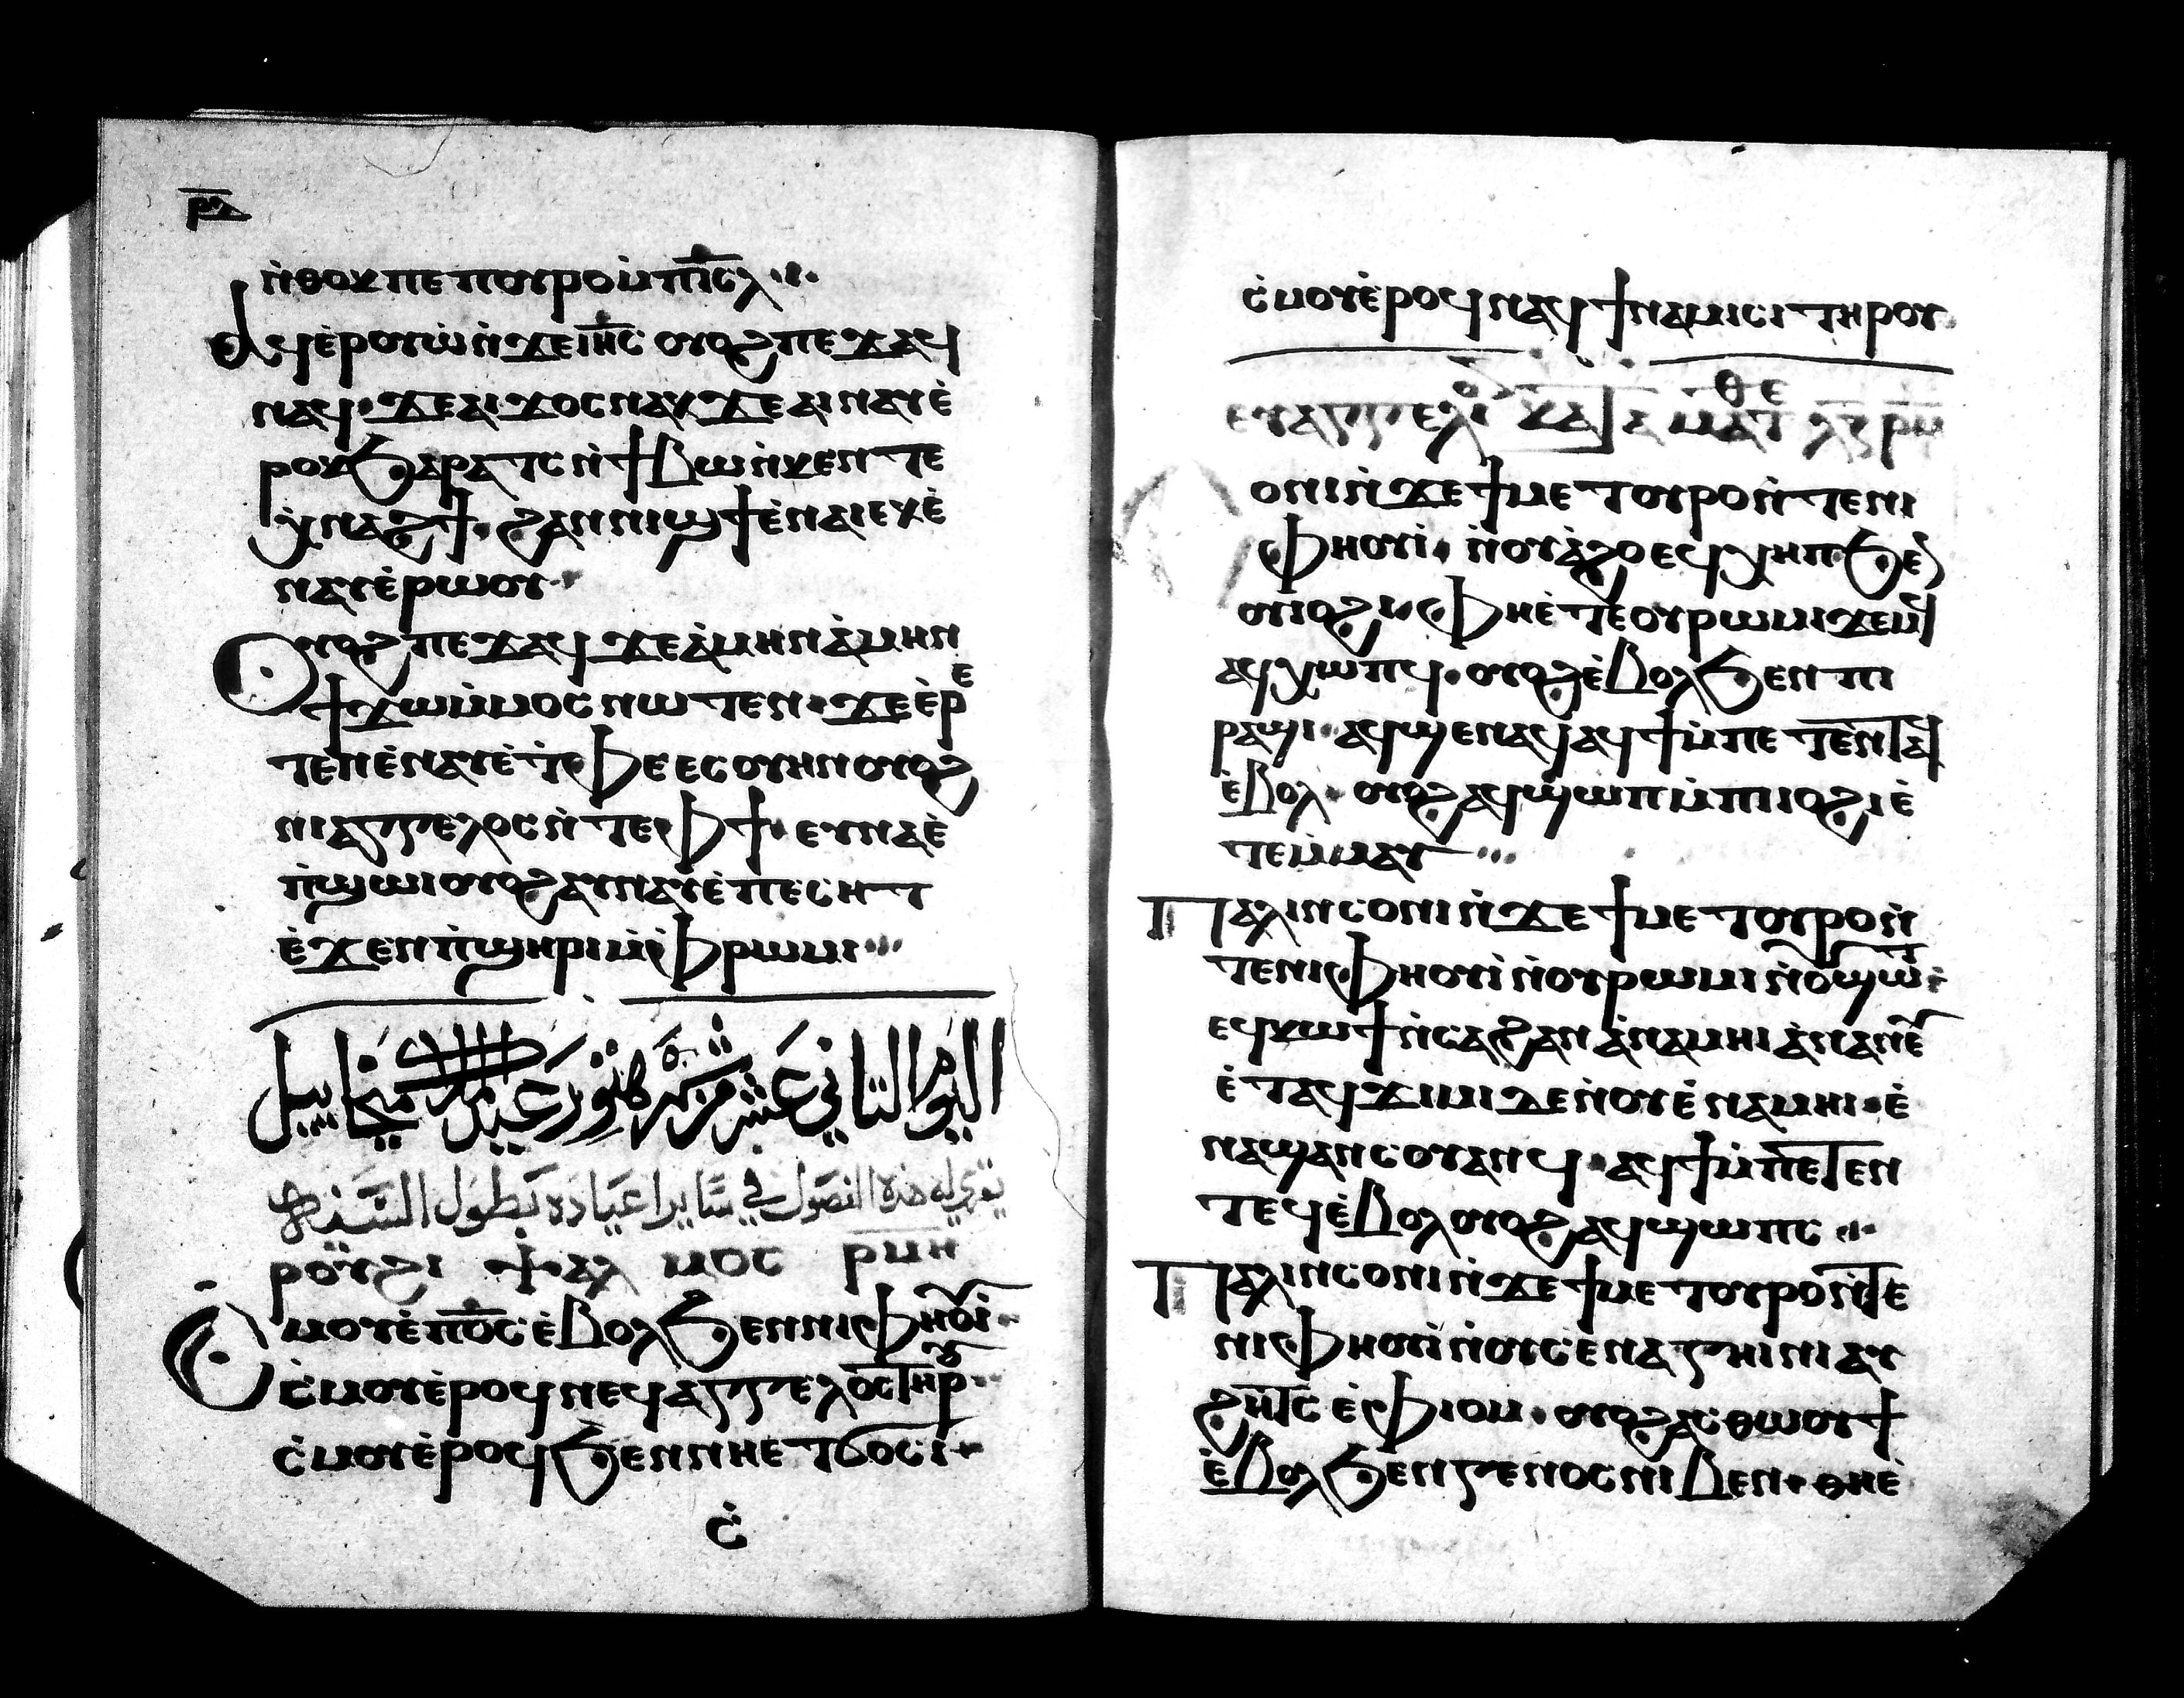 ⲛ̇ⲑⲟⲕ ⲡⲉ ⲡⲟⲩⲣⲟ ⲙ̇ⲡⲓ̅ⲥ̅ⲗ̅
ⲁϥⲉ̇ⲣⲟⲩⲱ̇ ⲛ̇ϫⲉ ⲓⲏ̅ⲥ ⲟⲩⲟϩ ⲡⲉϫⲁϥ
ⲛⲁϥ ϫⲉ ⲁⲓϫⲟⲥ ⲛⲁⲕ ϫⲉ ⲁⲓⲛⲁⲩ ⲉ̇
ⲣⲟⲕ ϧⲁⲣⲁⲧⲥ ⲛ̇ϯⲃⲱ ⲛ̇ⲕⲉⲛⲧⲉ
ⲭ̇ⲛⲁϩϯ ϩⲁⲛⲛⲓϣϯ ⲉ̇ⲛⲁⲓ ⲉⲕⲉ̇
ⲛⲁⲩ ⲉ̇ⲣⲱⲟⲩ
ⲟⲩⲟϩ ⲡⲉϫⲁϥ ϫⲉ ⲁ̇ⲙⲏⲛ ⲁ̇ⲙⲏⲛ
ϯϫⲱ ⲙ̇ⲙⲟⲥ ⲛⲱⲧⲉⲛ ϫⲉ ⲉ̇ⲣⲉ
ⲧⲉⲛⲉ̇ⲛⲁⲩ ⲉ̇ⲧ̇ⲫⲉ ⲉⲥⲟⲩⲏⲛ ⲟⲩⲟϩ
ⲛⲓⲁⲅⲅⲉⲗⲟⲥ ⲛ̇ⲧⲉ ⲫϯ ⲉⲩⲛⲁⲉ̇
ⲡ̇ϣⲱⲓ ⲟⲩⲟϩ ⲉⲩⲛⲁⲩ ⲉ̇ⲡⲉⲥⲏⲧ
ⲉ̇ϫⲉⲛ ⲡ̇ϣⲏⲣⲓ ⲙ̇ⲫⲣⲱⲙⲓ
اليوم التاني عشر من شهر هتور عيد الملاك ميخاييل
يقرى له هذه الفصول في ساير اعياده بطول السنه
ⲣⲟⲩϩⲓ ⲯⲁⲗ ⲙⲟⲥ ⲣ̅ⲙ̅ⲏ̅
ⲥ̇ⲙⲟⲩ ⲉ̇ⲡⲟ̅ⲥ ⲉ̇ⲃⲟⲗ ϧⲉⲛ ⲛⲓⲫⲏⲟⲩⲓ̇
ⲥ̇ⲙⲟⲩ ⲉ̇ⲣⲟϥ ⲛⲉϥⲁⲅⲅⲉⲗⲟⲥ ⲧⲏⲣⲟⲩ
ⲥ̇ⲙⲟⲩ ⲉ̇ⲣⲟϥ ϧⲉⲛ ⲛⲏⲉⲧϭⲟⲥⲓ
ⲥ̇
ⲥ̇ⲙⲟⲩ ⲉ̇ⲣⲟϥ ⲛⲁϥϯⲛⲁⲙⲓⲥⲓ ⲧⲏⲣⲟⲩ
ⲉⲩⲁⲅⲅⲉⲗⲓ ⲙⲁⲧⲑⲉ
ⲟⲛⲓ ⲛ̇ϫⲉ ϯⲙⲉⲧⲟⲩⲣⲟ ⲛ̇ⲧⲉ ⲛⲓ
ⲫⲏⲟⲩⲓ̇ ⲛ̇ⲟⲩⲁ̇ϩⲟ ⲉϥⲭⲏⲡ ϧⲉⲛ
ⲟⲩⲓⲟϩⲓ ⲫⲏⲉ̇ⲧⲉ ⲟⲩⲣⲱⲙⲓ ϫⲉⲙϥ
ⲁϥⲭⲟⲡϥ ⲟⲩⲟϩ ⲉ̇ⲃⲟⲗ ϧⲉⲛ ⲡⲓ
ⲣⲁϣⲓ ⲁϥϣⲉⲛⲁϥ ⲁϥϯ ⲙ̇ⲡⲉⲧⲉⲛⲧⲁϥ
ⲉ̇ⲃⲟⲗ ⲟⲩⲟϩ ⲁϥϣⲱⲡ ⲙ̇ⲡⲓⲓⲟϩⲓ ⲉ̇
ⲧⲉⲙ̇ⲙⲁⲩ
ⲡⲁⲗⲓⲛ ⲥⲟⲛⲓ ⲛ̇ϫⲉ ϯⲙⲉⲧⲟⲩⲣⲟ ⲛ̇
ⲧⲉ ⲛⲓⲫⲏⲟⲩⲓ̇ ⲛ̇ⲟⲩⲣⲱⲙⲓ ⲛ̇ⲉϣⲱⲧ
ⲉϥⲕⲱϯ ⲛ̇ⲥⲁ ϩⲁⲛ ⲁ̇ⲛⲁⲙⲏⲓ ⲁ̇ⲛⲁⲛⲉⲩ
ⲉ̇ⲧⲁϥϫⲓⲙⲓ ⲇⲉ ⲛ̇ⲟⲩⲉ̇ⲛⲁⲙⲏⲓ ⲉ̇
ⲛⲁϣⲁⲛⲥⲟⲩⲉⲛϥ ⲁϥϯ ⲙ̇ⲡⲉⲧⲉⲛ
ⲧⲉϥ ⲉ̇ⲃⲟⲗ ⲟⲩⲟϩ ⲁϥϣⲱⲡⲥ
ⲡⲁⲗⲓⲛ ⲥⲟⲛⲓ ⲛ̇ϫⲉ ϯⲙⲉⲧⲟⲩⲣⲟ ⲛ̇ⲧⲉ
ⲛⲓⲫⲏⲟⲩⲓ̇ ⲛ̇ⲟⲩⲥⲉⲛⲁⲅⲏⲛⲓ ⲉⲁⲩ
ϩⲓⲧⲥ ⲉ̇ⲫⲓⲟⲙ ⲟⲩⲟϩ ⲁⲥⲑⲱⲟⲩϯ
ⲉ̇ⲃⲟⲗ ϧⲉⲛ ⲅⲉⲛⲟⲥ ⲛⲓⲃⲉⲛ ⲑⲏⲉ̇